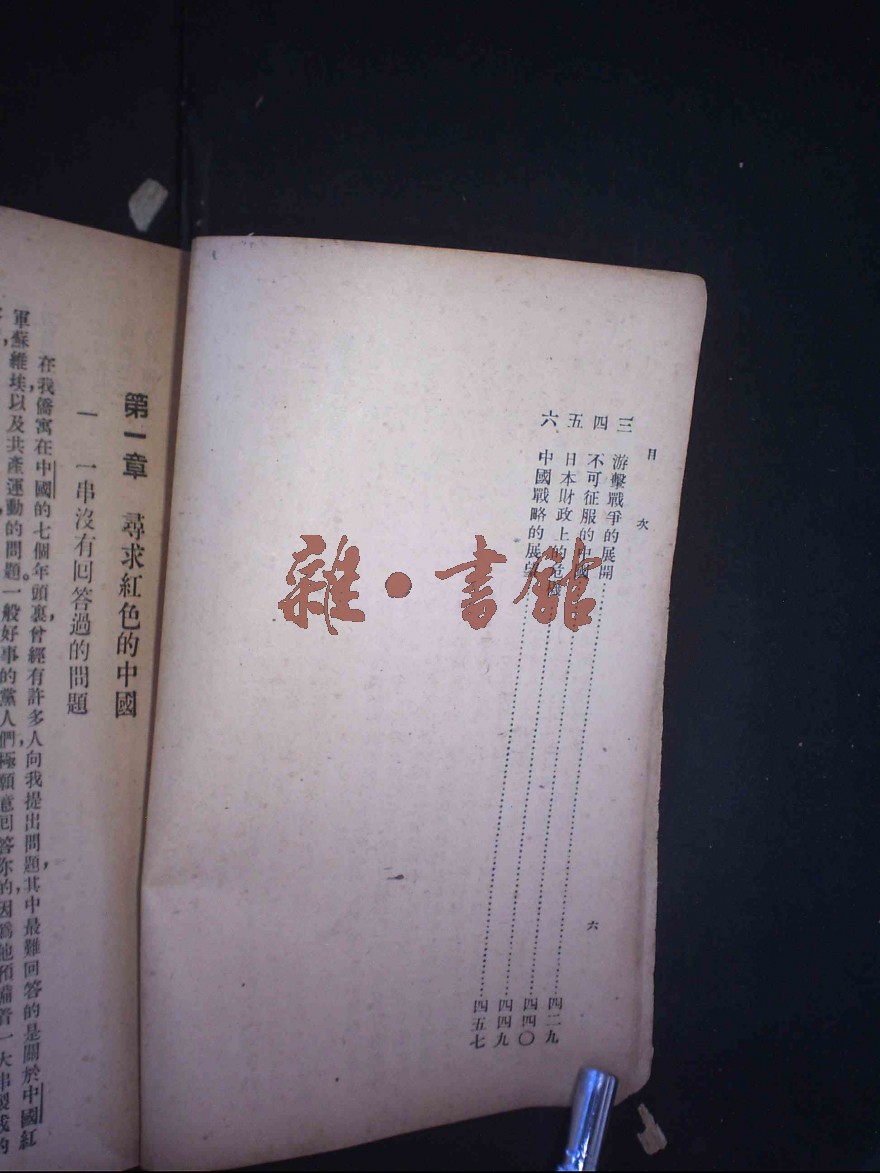 目次
六
三 游擊戰爭的展開 四二九
四 不可征服的中國 四四〇
五 日本財政上的危機 四四九
六 中國戰略的展望 四五七
雜·書館
第一章 尋求紅色的中國
一 一串沒有回答過的問題
在我僑寓在中國的七個年頭裏,曾經有許多人向我提出問題,其中最難回答的是關於中國紅
軍,蘇維埃以及共產運動的問題。一般好事的黨人們,極願意回答你的,因爲他預備着一大串製成的